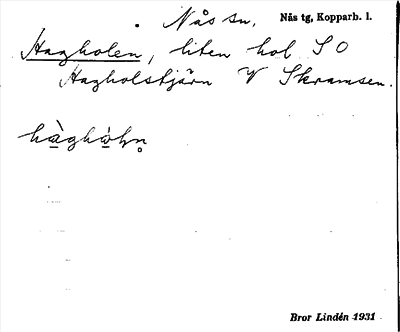 Nås sn. Nås tg, Kopparb. l.
Hagholen, liten hol S O
Hagholstjärn V Skramsen.
hàghòḷn̥
Bror Lindén 1931